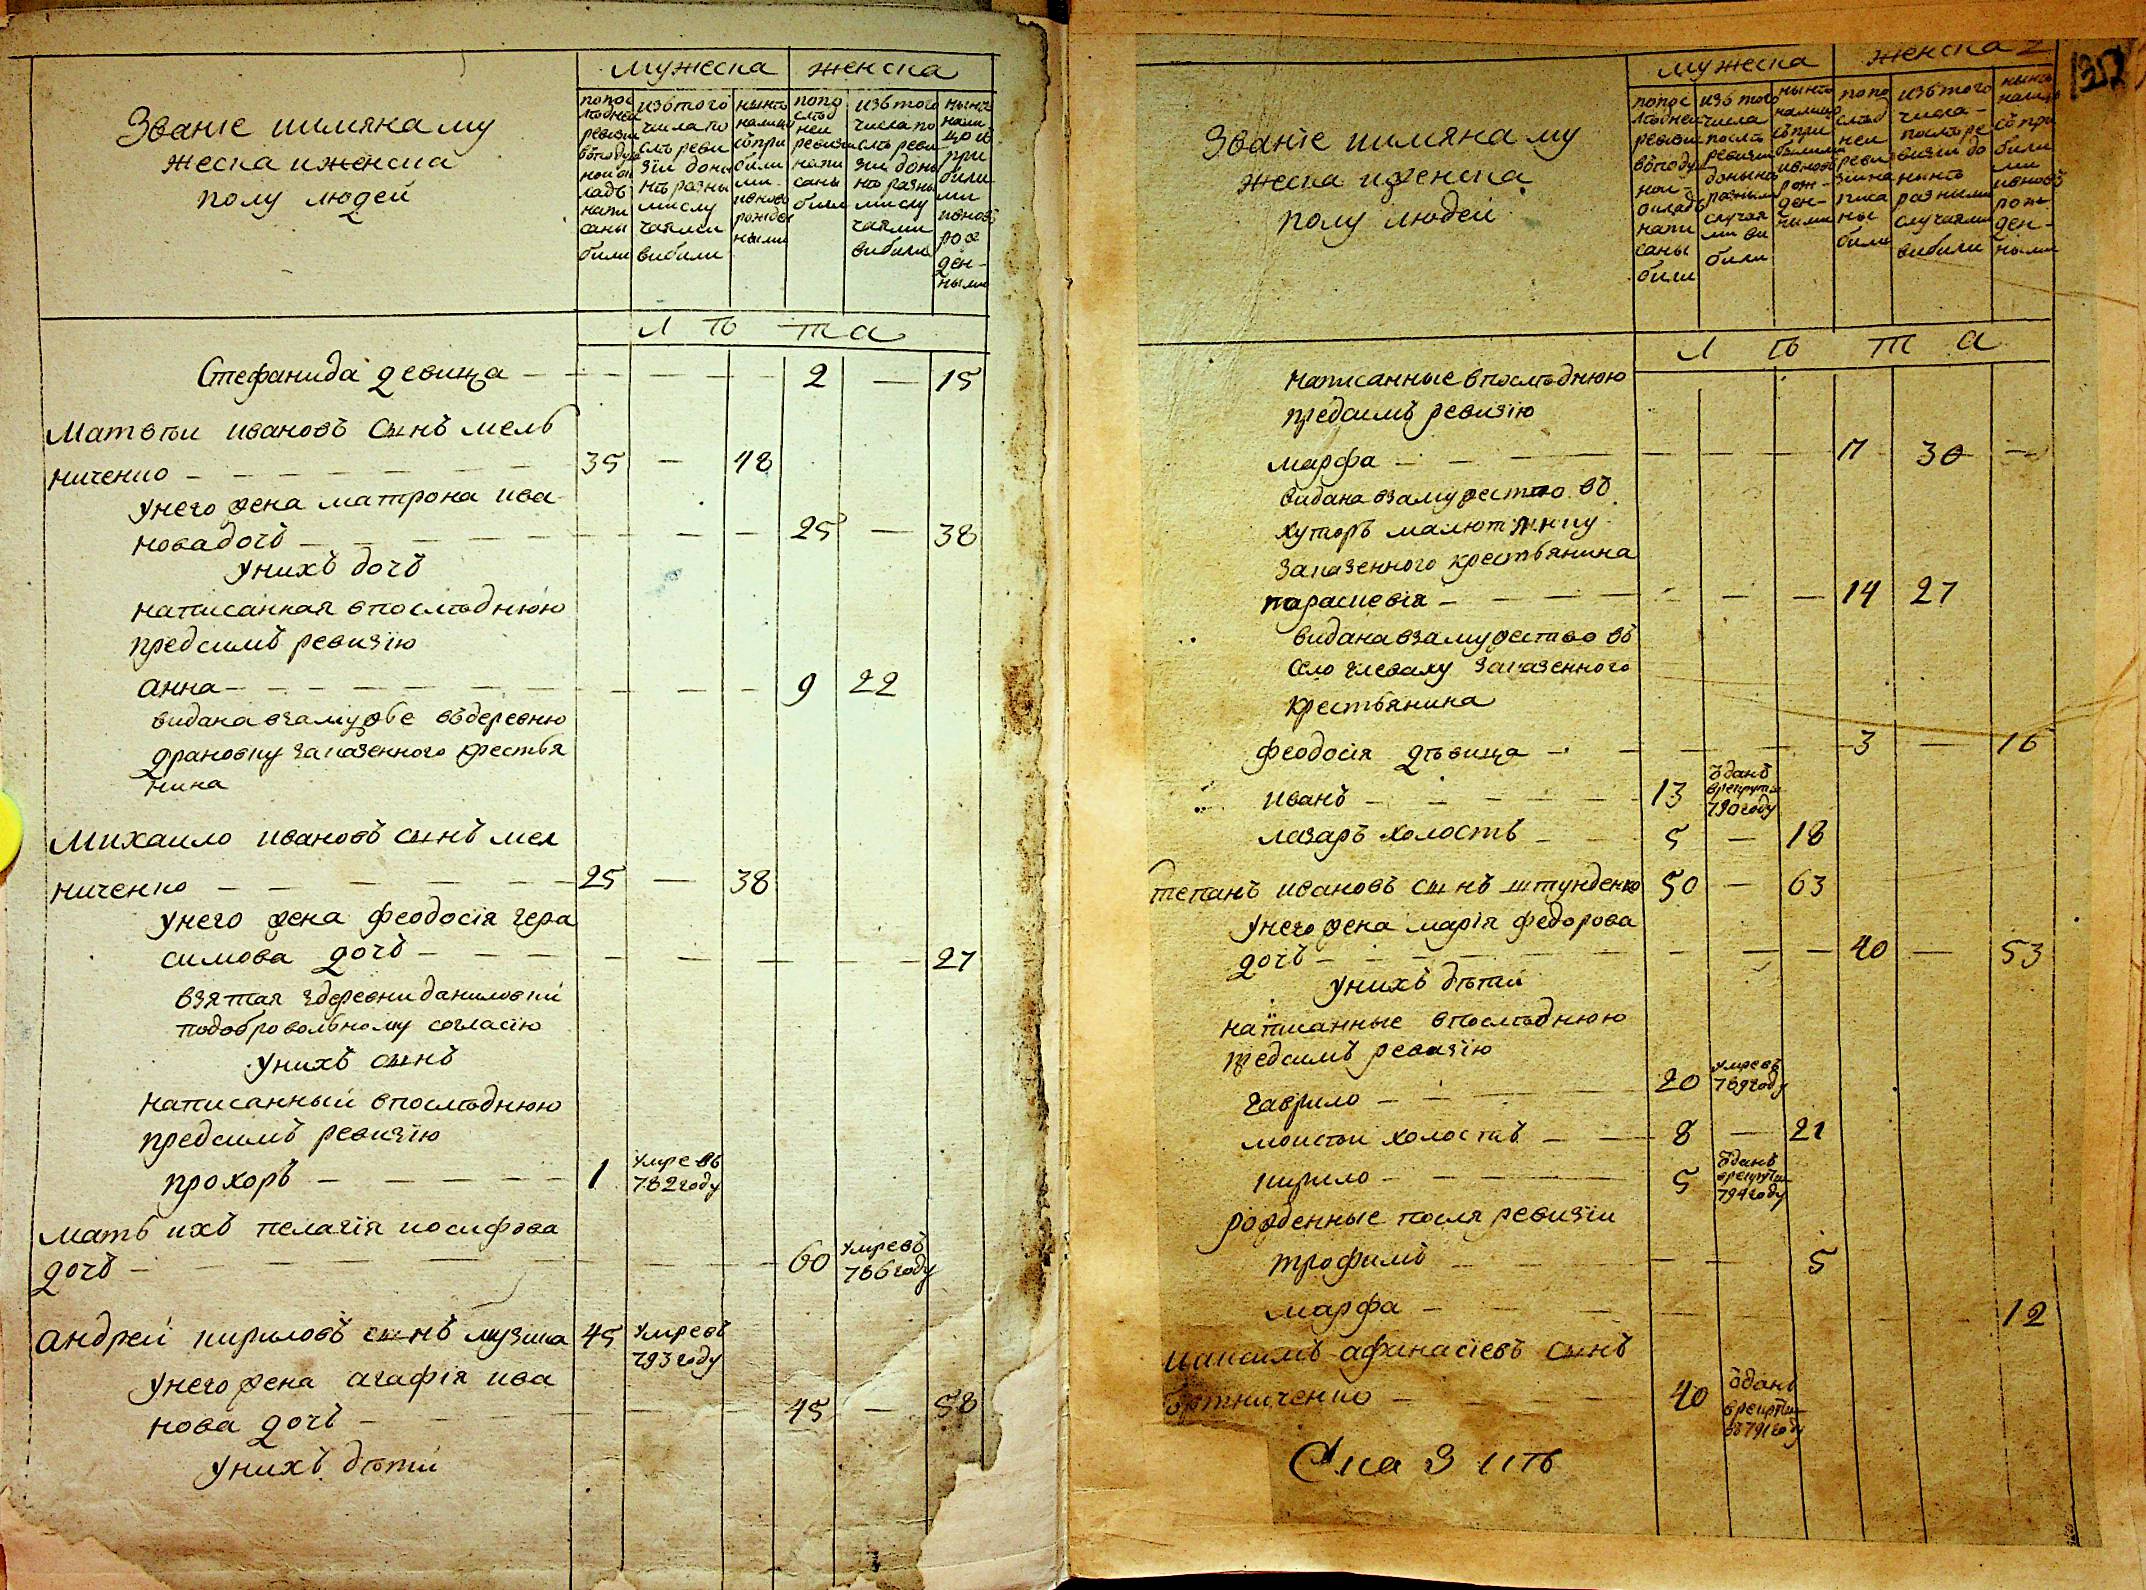 мужеска женска
Званіе иимяна му
жеска иженска
полу людей
попос
лѣдней
ревизи
вподуш
ной ок
ладъ
напи
саны
били
изътого
числа по
слѣ реви
зіи доны
нѣ разны
ми слу
чаями
вибили
нынѣ
налицо
сѣ при
били
ми
ивновь
рожден
ными
попо
слѣд
ней
ревизи
напи
саны
били
изътого
числа по
слѣ реви
зіи доны
нѣ разны
ми слу
чаями
вибили
нынѣ
нали
цо съ
при
били
ми
ивновъ
рож
ден-
ными
Л ѣ т а
Стефанида девица — 2 — 15
Матвѣи ивановъ сынъ мель
ниченко — 35 — 48
унего жена матрона ива
нова дочь — 25 — 38
унихъ дочь
написанная впослѣднюю
предсимъ ревизію
анна — 9 22
видана взамужже въдеревню
драновку заказенного крестья
нина
Михаило ивановъ сынъ мел
ниченко — 25 — 38
унего жена феодосія гера
симова дочь — 27
взятая здеревни даниловки
подобровольному согласію
унихъ сынъ
написанный впослѣднюю
предсимъ ревизію
прохоръ — 1 умре въ
782 году
мать ихъ пелагія иосифова
дочь — 60 умре въ
786 году
андрей кириловъ сынъ музика 45 умре въ
793 году
унего жена агафія ива
нова дочь — 45 — 58
унихъ дѣти
мужеска женска 2
Званіе иимяна му
жеска иженска
полу людей
попос
лѣдней
ревизи
вподуш
ной
окладъ
напи
саны
били
изъ того
числа
послѣ
ревизи
донынѣ
разными
случая
ми ви
били
нынѣ
налицо
сѣ при
билими
ивновъ
рож-
ден-
ними
попо
слѣд
ней
реви
зіи на
писа
ны
били
изътого
числа
послѣ ре
визіи до
нынѣ
разними
случаями
вибили
нынѣ
налицо
съ при
били
ми
ивновъ
рож
ден-
ными
Л ѣ т а
написанные впослѣднюю
предсимъ ревизію
марфа — 17 30 —
видана взамужество въ
хуторъ
заказенного крестьянина
параскевія — 14 27
видана взамужество въ
село заказенного
крестьянина
феодосія дѣвица — 3 — 16
иванъ — 13 ѿданъ
врекруты
790 году
лазаръ холостъ — 5 — 18
степанъ ивановъ сынъ штунденко 50 — 63
унего жена марія федорова
дочь — 40 — 53
унихъ дѣти
написанные впослѣднюю
предсимъ ревизію
гаврило — 20 умре въ
789 году
моисеи холостъ — 8 — 21
кирило — 5 ѿданъ
врекруты
794 году
рожденные посля ревизіи
трофимъ — 5
марфа — 12
максимъ афанасіевъ сынъ
бортниченко — 40 ѿданъ
врекруты
въ 791 году